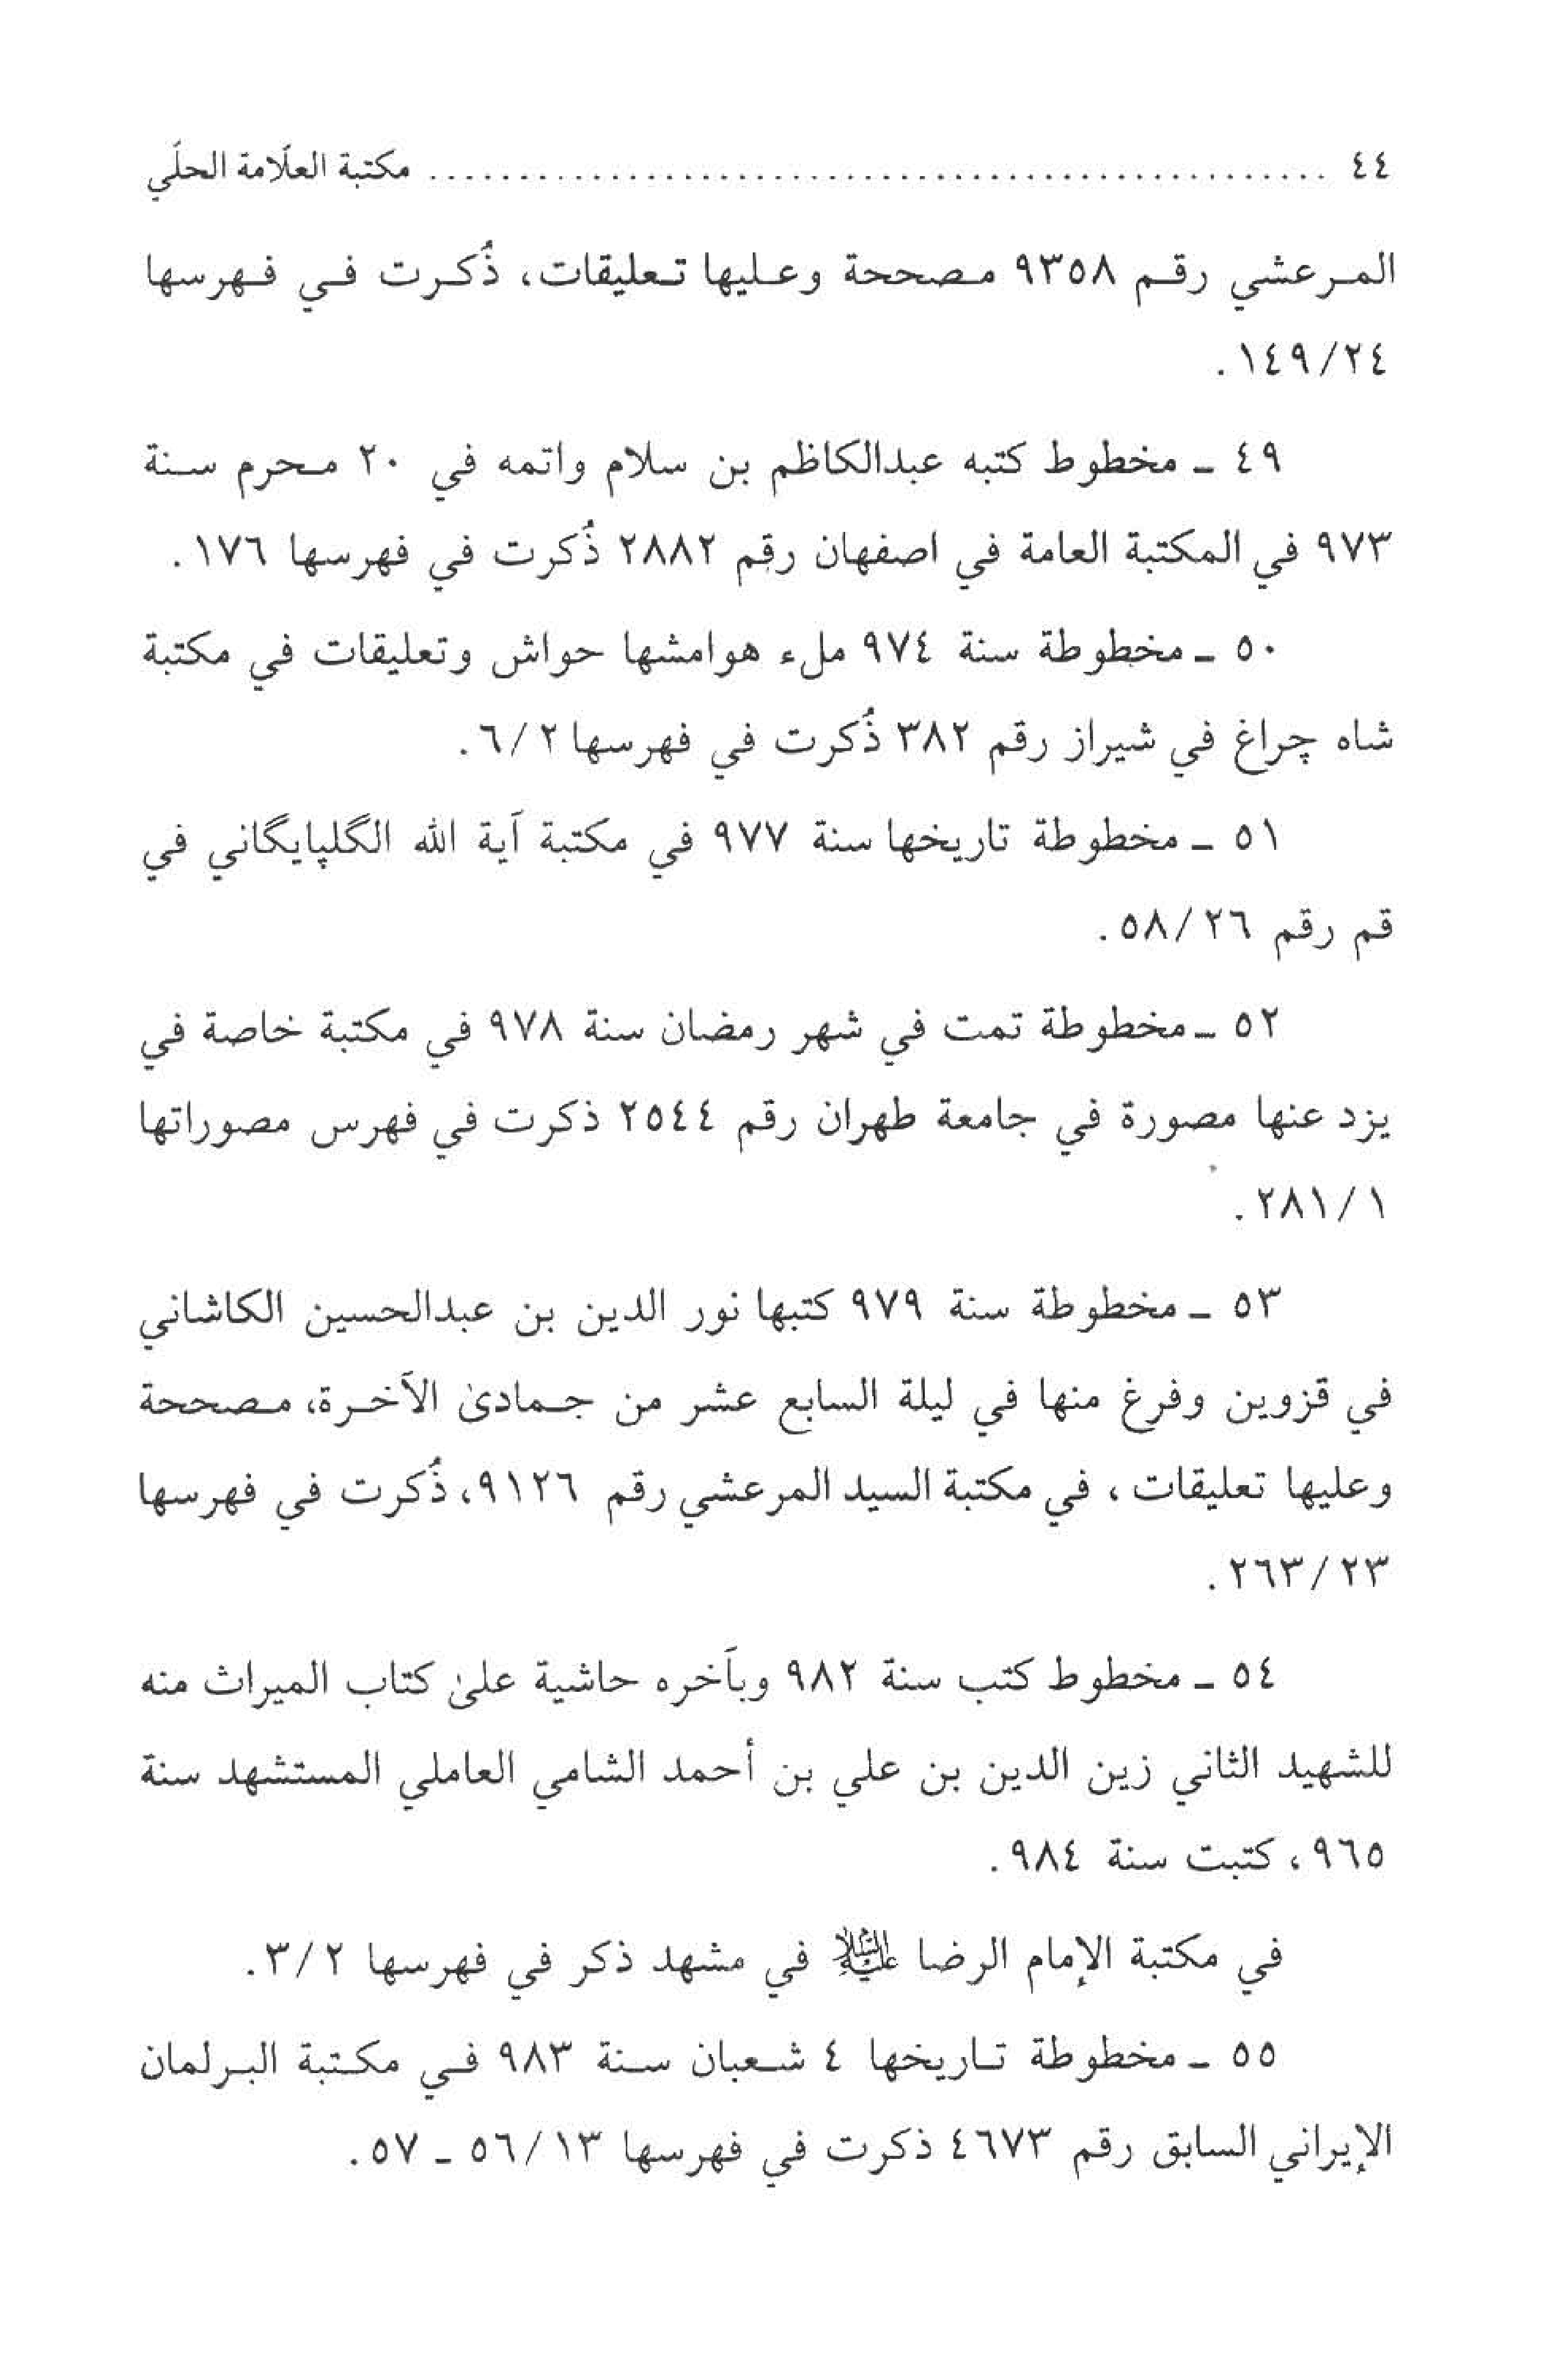 ٤٤ ................................................ مكتبة العلّامة الحلّي
المرعشي رقم ٩٣٥٨ مصححة وعليها تعليقات، ذُكرت في فهرسها
١٤٩/٢٤.
٤٩ ـ مخطوط كتبه عبدالكاظم بن سلام واتمه في ٢٠ محرم سنة
٩٧٣ في المكتبة العامة في اصفهان رقم ٢٨٨٢ ذُكرت في فهرسها ١٧٦.
٥٠ ـ مخطوطة سنة ٩٧٤ ملء هوامشها حواش وتعليقات في مكتبة
شاه چراغ في شيراز رقم ٣٨٢ ذُكرت في فهرسها ٦/٢.
٥١ ـ مخطوطة تاريخها سنة ٩٧٧ في مكتبة آية الله الگلپايگاني في
قم رقم ٥٨/٢٦.
٥٢ ـ مخطوطة تمت في شهر رمضان سنة ٩٧٨ في مكتبة خاصة في
يزد عنها مصورة في جامعة طهران رقم ٢٥٤٤ ذكرت في فهرس مصوراتها
٢٨١/١.
٥٣ ـ مخطوطة سنة ٩٧٩ كتبها نور الدين بن عبدالحسين الكاشاني
في قزوين وفرغ منها في ليلة السابع عشر من جمادىٰ الآخرة، مصححة
وعليها تعليقات ، في مكتبة السيد المرعشي رقم ٩١٢٦، ذُكرت في فهرسها
٢٦٣/٢٣.
٥٤ ـ مخطوط كتب سنة ٩٨٢ وبآخره حاشية علىٰ كتاب الميراث منه
للشهيد الثاني زين الدين بن علي بن أحمد الشامي العاملي المستشهد سنة
٩٦٥، كتبت سنة ٩٨٤.
في مكتبة الإمام الرضا عليه السلام في مشهد ذكر في فهرسها ٣/٢.
٥٥ ـ مخطوطة تاريخها ٤ شعبان سنة ٩٨٣ في مكتبة البرلمان
الإيراني السابق رقم ٤٦٧٣ ذكرت في فهرسها ٥٦/١٣ ـ ٥٧.